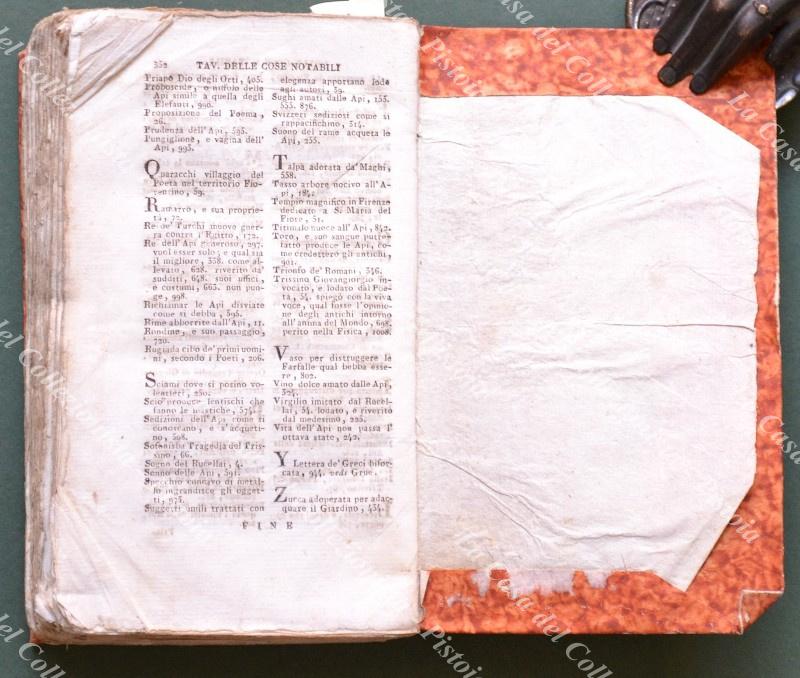 352 TAV. DELLE COSE NOTABILI
Priapo Dio degli Orti, 405.
Proboscide, o niffolo delle
Api simile a quella degli
Elefanti, 990.
Proposizione del Poema,
26.
Prudenza dell' Api, 595.
Pungiglione, e vagina dell'
Api, 993.
Quaracchi villaggio del
Poeta nel territorio Fio-
rentino, 59.
Ramarro, e sua proprie-
tà, 72.
Re de' Turchi muove guer-
ra contra l'Egitto, 172.
Re dell' Api generoso, 297.
vuol esser solo; e qual sia
il migliore, 358. come al-
levato, 628. riverito da'
sudditi, 648. suoi uffici,
e costumi, 665. non pun-
ge, 998.
Richiamar le Api disviate
come si debba, 595.
Rime abborrite dall'Api, 11.
Rondine, e suo passaggio,
720.
Rugiada cibo de' primi uomi-
ni, secondo i Poeti, 206.
Sciami dove si posino vo-
lentieri, 250.
Scio produce lentischi che
fanno le mastiche, 574.
Sedizioni dell' Api come si
conoscano, e s'acqueti-
no, 508.
Sofonisba Tragedia del Tris-
sino, 66.
Sogno del Rucellai, 4.
Sonno delle Api, 591.
Specchio concavo di metal-
lo ingrandisce gli ogget-
ti, 975.
Suggetti umili trattati con
elegenza apportano lode
agli autori, 59.
Sughi amati dalle Api, 155.
555. 876.
Svizzeri sediziosi come si
rappacifichino, 514.
Suono del rame acqueta le
Api, 255.
Talpa adorata da' Maghi,
558.
Tasso arbore nocivo all' A-
pi, 184.
Tempio magnifico in Firenze
dedicato a S. Maria del
Fiore, 51.
Titimalo nuoce all' Api, 842.
Toro, e suo sangue putre-
fatto produce le Api, co-
me credettero gli antichi,
901.
Trionfo de' Romani, 546.
Trissino Giovangiorgio in-
vocato, e lodato dal Poe-
ta, 54. spiegò con la viva
voce, qual fosse l'opinio-
ne degli antichi intorno
all'anima del Mondo, 698.
perito nella Fisica, 1008.
Vaso per distruggere le
Farfalle qual bebba esse-
re, 802.
Vino dolce amato dalle Api,
524.
Virgilio imitato dal Rucel-
lai, 54. lodato, e riverito
dal medesimo, 225.
Vita dell' Api non passa l'
ottava state, 242.
Y Lettera de' Greci bifor-
cata, 944. vedi Grue.
Zucca adoperata per adac-
quare il Giardino, 434.
FINE
La Casa del Collezionista
Pistoia